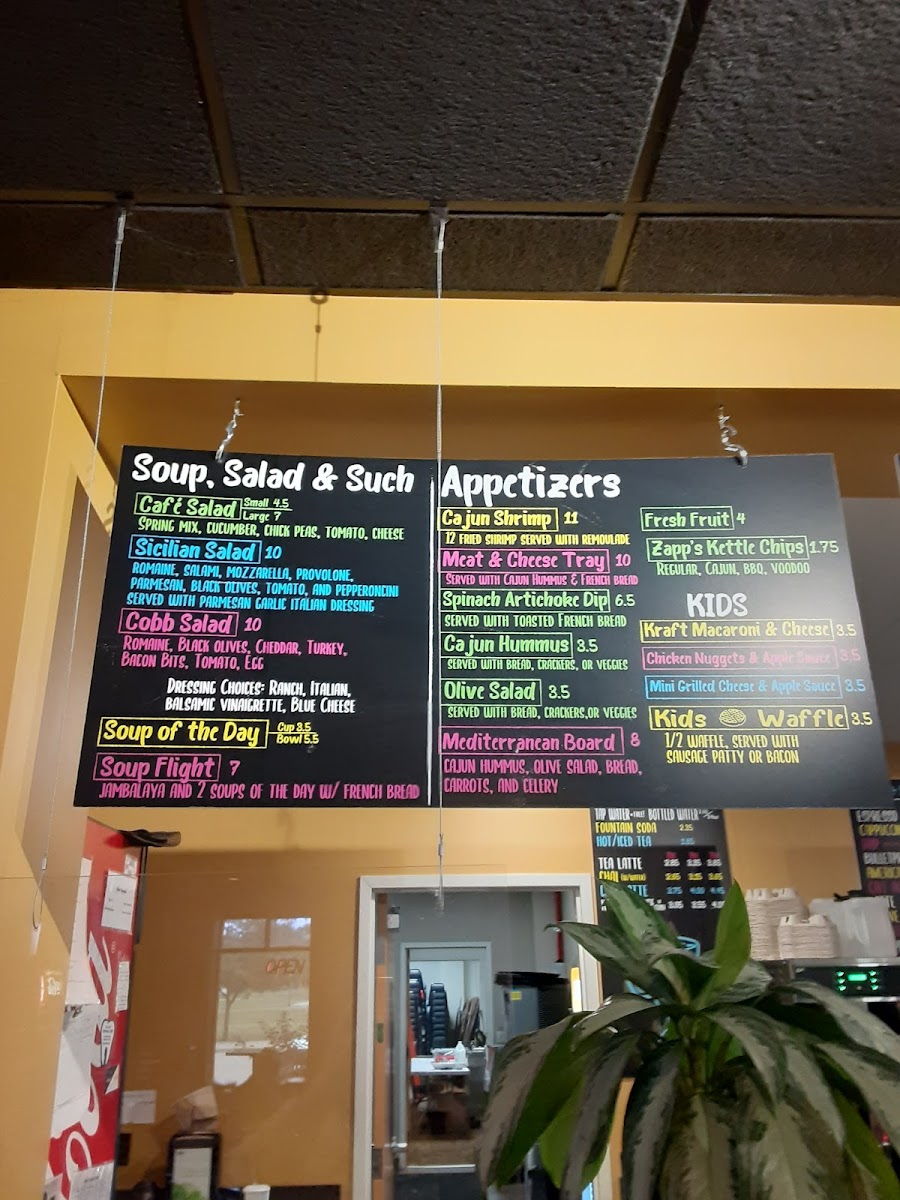 Soup, Salad & Such
Café Salad Small 4.5
Large 7
Spring mix, cucumber, chick peas, tomato, cheese
Sicilian Salad 10
Romaine, salami, mozzarella, provolone,
parmesan, black olives, tomato, and pepperoncini
served with parmesan garlic Italian dressing
Cobb Salad 10
Romaine, Black olives, Cheddar, Turkey,
Bacon Bits, Tomato, Egg
Dressing Choices: Ranch, Italian,
balsamic vinaigrette, Blue Cheese
Soup of the Day Cup 3.5
Bowl 5.5
Soup Flight 7
Jambalaya and 2 soups of the day w/ French bread
Appetizers
Cajun Shrimp 11
12 fried shrimp served with remoulade
Meat & Cheese Tray 10
Served with Cajun Hummus & French bread
Spinach Artichoke Dip 6.5
served with toasted French bread
Cajun Hummus 3.5
served with bread, crackers, or veggies
Olive Salad 3.5
served with bread, crackers, or veggies
Mediterranean Board 8
Cajun hummus, olive salad, bread,
carrots, and celery
Fresh Fruit 4
Zapp's Kettle Chips 1.75
Regular, Cajun, BBQ, Voodoo
KIDS
Kraft Macaroni & Cheese 3.5
Chicken Nuggets & Apple Sauce 3.5
Mini Grilled Cheese & Apple Sauce 3.5
Kids Waffle 3.5
1/2 waffle, served with
sausage patty or bacon
Bottled Water
Fountain Soda 2.25
Hot/Iced Tea
Tea Latte
Chai
Espresso
OPEN